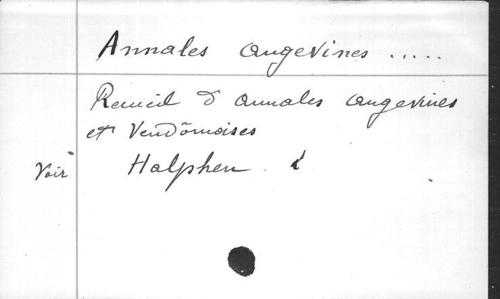 Annales angevines .....
Recueil d'annales angevines
et Vendômoises
Voir Halphen